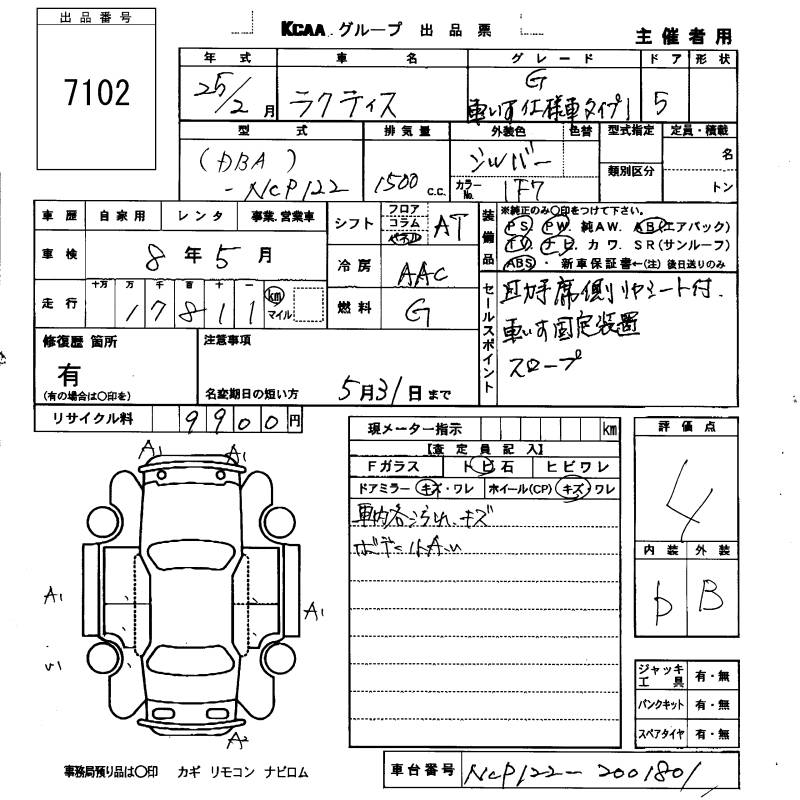 出品番号
7102
KCAA グループ 出品票
主催者用
年式 車名 グレード ドア 形状
25/2月 ラクティス G 車いす仕様車タイプ1 5
型式 排気量 外装色 色替 型式指定 定員・積載
(DBA)-NCP122 1500 c.c. シルバー 名
カラーNo. 1F7 類別区分 トン
車歴 自家用 レンタ 事業.営業車
車検 8年5月
走行 十万 万 千 百 十 一
17811 km マイル
シフト フロア コラム パネル AT
冷房 AAC
燃料 G
装備品
※純正のみ○印をつけて下さい。
PS. PW. 純AW. AB(エアバック)
TV. ナビ. カワ. SR(サンルーフ)
ABS・新車保証書←(注)後日送りのみ
セールスポイント
助手席側リヤシート付.
車いす固定装置
スロープ
修復歴 箇所
有
(有の場合は○印を)
注意事項
名変期日の短い方 5月31日まで
リサイクル料 9900円
現メーター指示 km
【査定員記入】
Fガラス トビ石 ヒビワレ
ドアミラー キズ・ワレ ホイール(CP) キズ・ワレ
車内各汚れ、キズ
評価点
4
内装 外装
D B
A1 A1
A1
A1
A2
ジャッキ工具 有・無
パンクキット 有・無
スペアタイヤ 有・無
事務局預り品は○印 カギ リモコン ナビロム
車台番号 NCP122-2001801